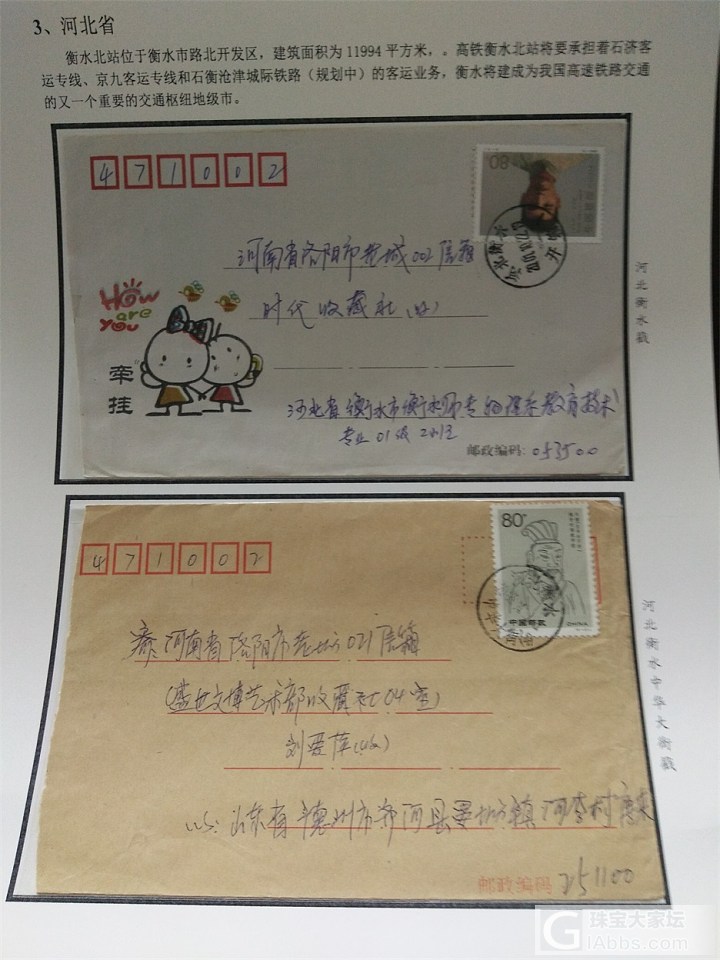 3、河北省
衡水北站位于衡水市路北开发区，建筑面积为 11994 平方米，。高铁衡水北站将要承担着石济客
运专线、京九客运专线和石衡沧津城际铁路（规划中）的客运业务，衡水将建成为我国高速铁路交通
的又一个重要的交通枢纽地级市。
471002
80
河南省洛阳市老城002信箱
时代收藏社(收)
How
are
you
牵
挂
河北省衡水市衡水师专物理系教育技术
专业01级
邮政编码: 053500
河北衡水戳
471002
80
中国邮政 CHINA
寄: 河南省洛阳市老城021信箱
(盛世文博艺术部收藏社04室)
刘爱萍(收)
山东省德州市齐河县晏城镇河李村
邮政编码 251100
河北衡水中华大街戳
珠宝大家坛
GIAbbs.com